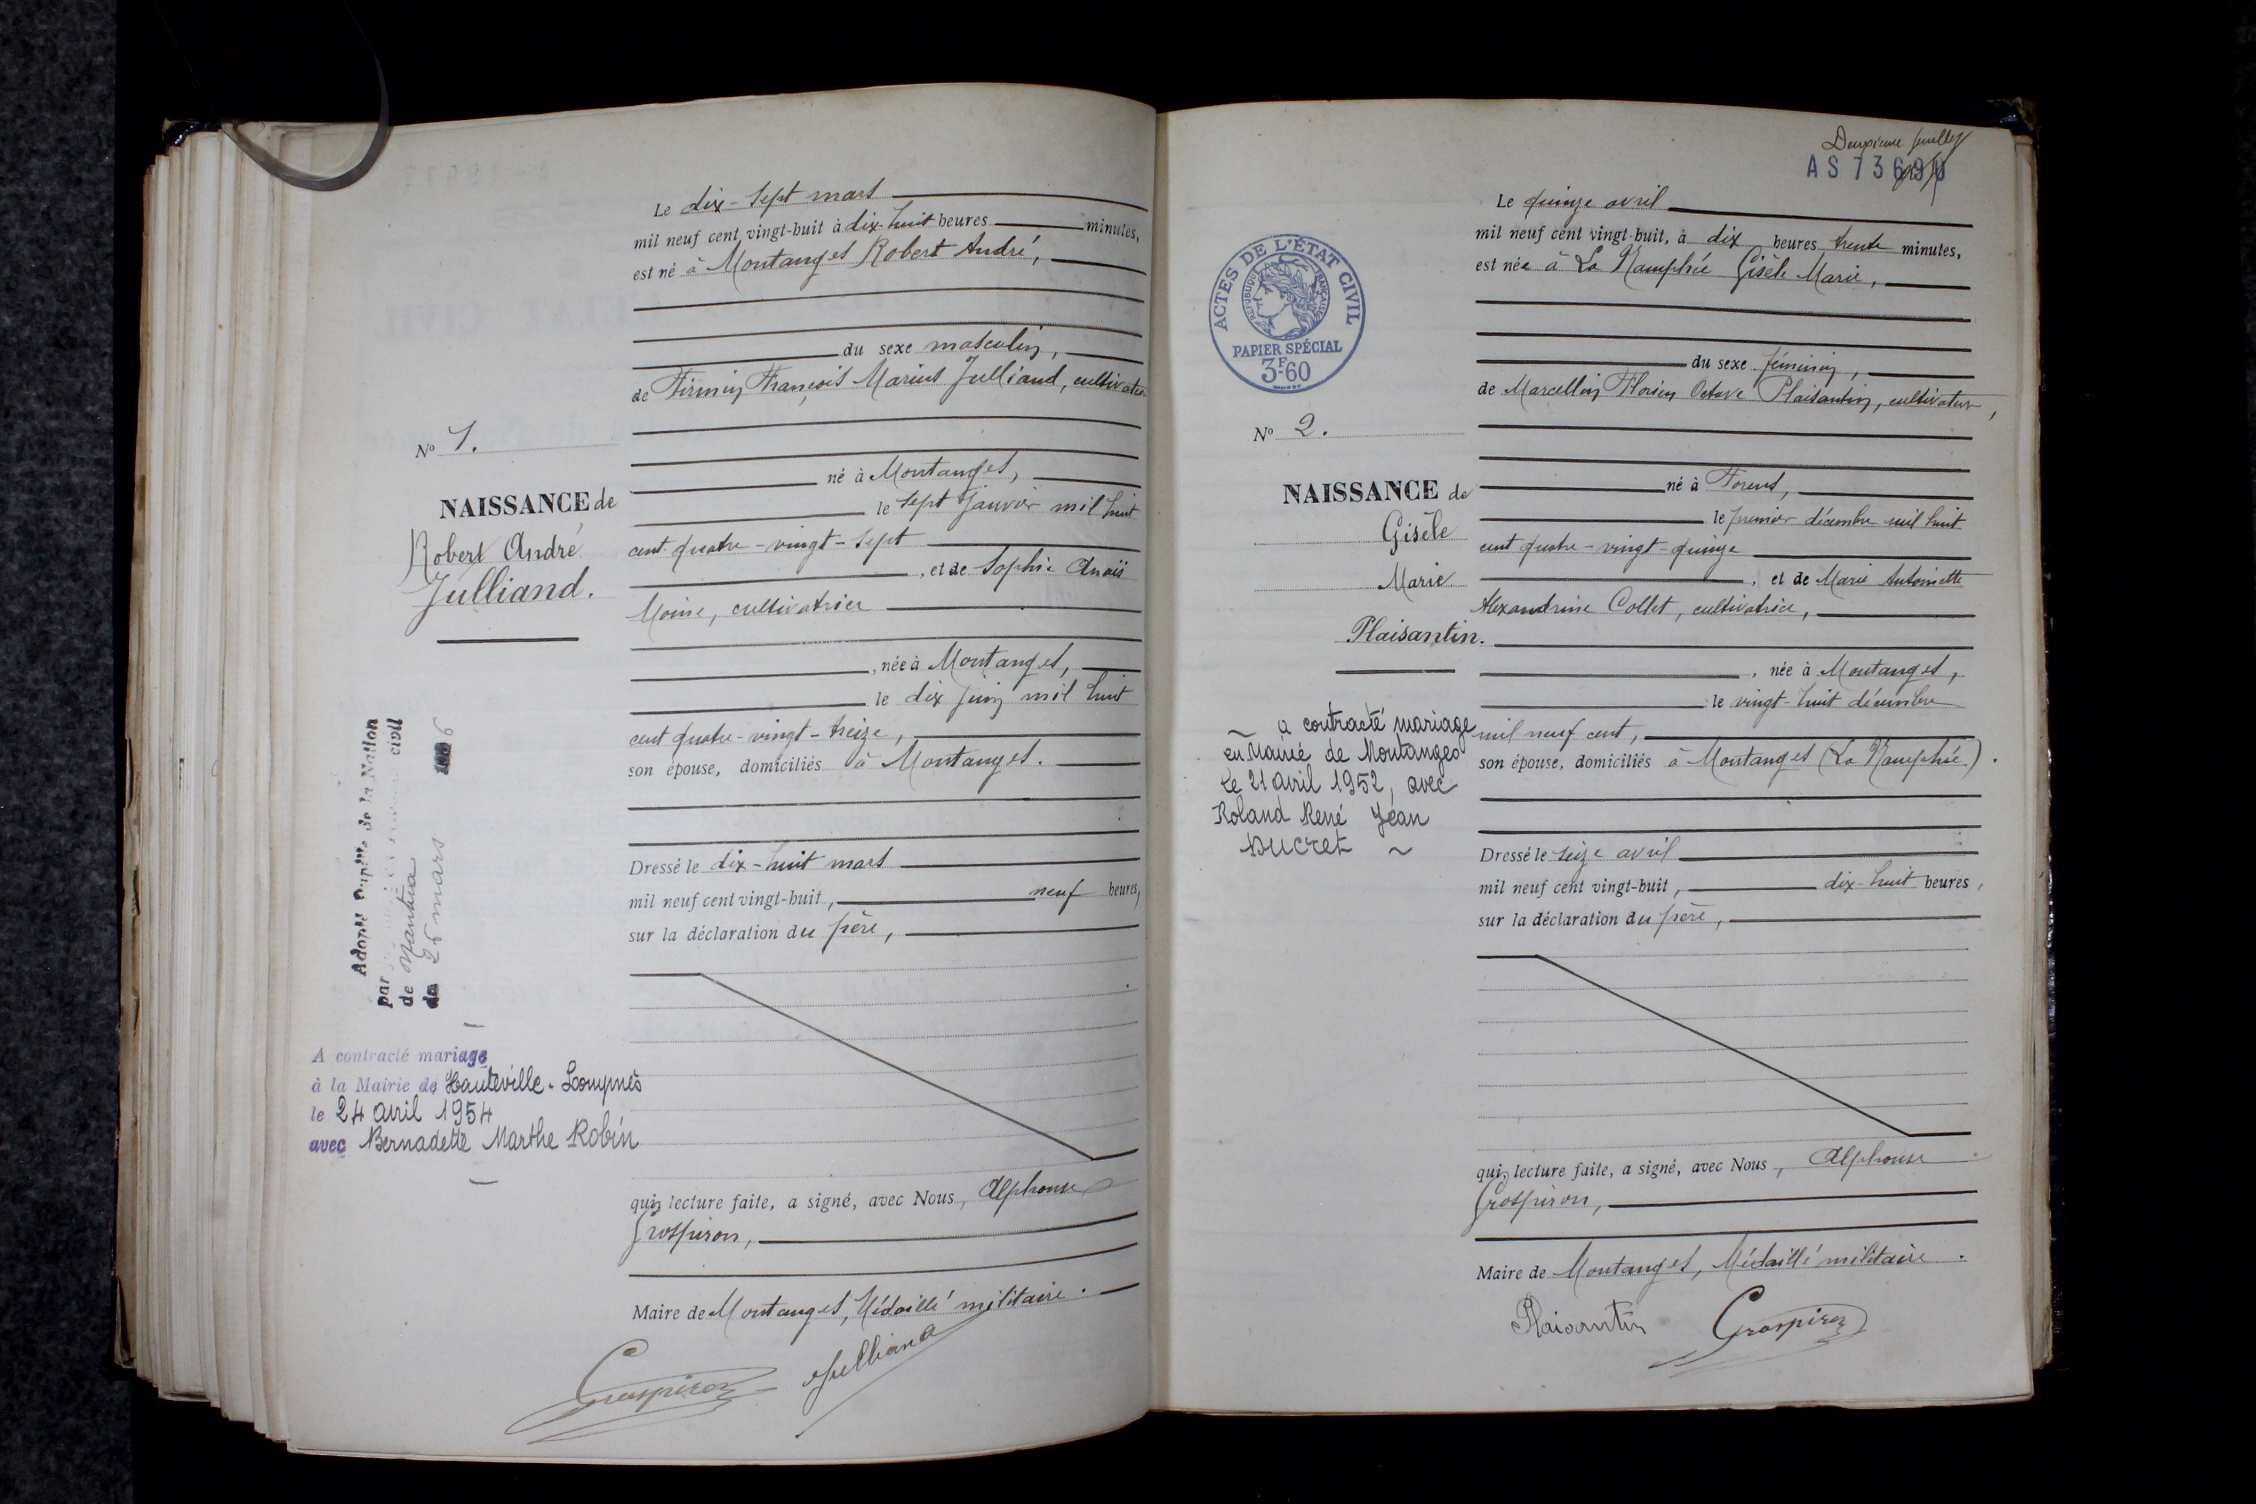 Le dix-sept mars
mil neuf cent vingt-huit à dix-huit heures minutes,
est né à Montanges Robert André,
du sexe masculin,
de Firmin François Marius Julliand, cultivateur
né à Montanges,
le sept janvier mil huit
cent quatre-vingt-sept
, et de Sophie Anaïs
Moine, cultivatrice
, née à Montanges,
le dix juin mil huit
cent quatre-vingt-treize,
son épouse, domiciliés à Montanges.
Dressé le dix-huit mars
mil neuf cent vingt-huit, neuf heures,
sur la déclaration du père,
qui, lecture faite, a signé, avec Nous, Alphonse
Grospiron,
Maire de Montanges, Médaillé militaire.
Grospiron Julliand
No 1.
NAISSANCE de
Robert André
Julliand.
Adopté Pupille de la Nation
par civil
de Nantua
du 26 mars
A contracté mariage
à la Mairie de Hauteville-Lompnès
le 24 avril 1954
avec Bernadette Marthe Robin
Deuxième feuillet
AS 73690
Le quinze avril
mil neuf cent vingt-huit, à dix heures trente minutes,
est née à La Namphée Gisèle Marie,
du sexe féminin,
de Marcellin Florien Octave Plaisantin, cultivateur,
né à Forens,
le premier décembre mil huit
cent quatre-vingt-quinze
, et de Marie Antoinette
Alexandrine Collet, cultivatrice,
, née à Montanges,
le vingt-huit décembre
mil neuf cent,
son épouse, domiciliés à Montanges (La Namphée).
Dressé le seize avril
mil neuf cent vingt-huit, dix-huit heures,
sur la déclaration du père,
qui, lecture faite, a signé, avec Nous, Alphonse
Grospiron,
Maire de Montanges, Médaillé militaire.
Plaisantin Grospiron
ACTES DE L'ÉTAT CIVIL
RÉPUBLIQUE FRANÇAISE
PAPIER SPÉCIAL
3F60
No 2.
NAISSANCE de
Gisèle
Marie
Plaisantin.
a contracté mariage
en Mairie de Montanges
le 21 avril 1952, avec
Roland René Jean
Ducret